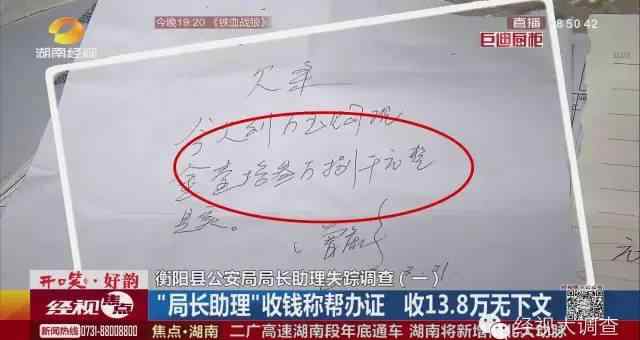 今晚19:20 《铁血战狼》
直播
8:50:42
湖南经视
巨迪厨柜
欠条
今欠到
金壹拾叁万捌千元整
是实。
开口笑·好韵
衡阳县公安局局长助理失踪调查（一）
经视焦点
“局长助理”收钱称帮办证 收13.8万无下文
新闻热线 0731-88008800
焦点·湖南 二广高速湖南段年底通车 湖南将新增
经视大调查
元